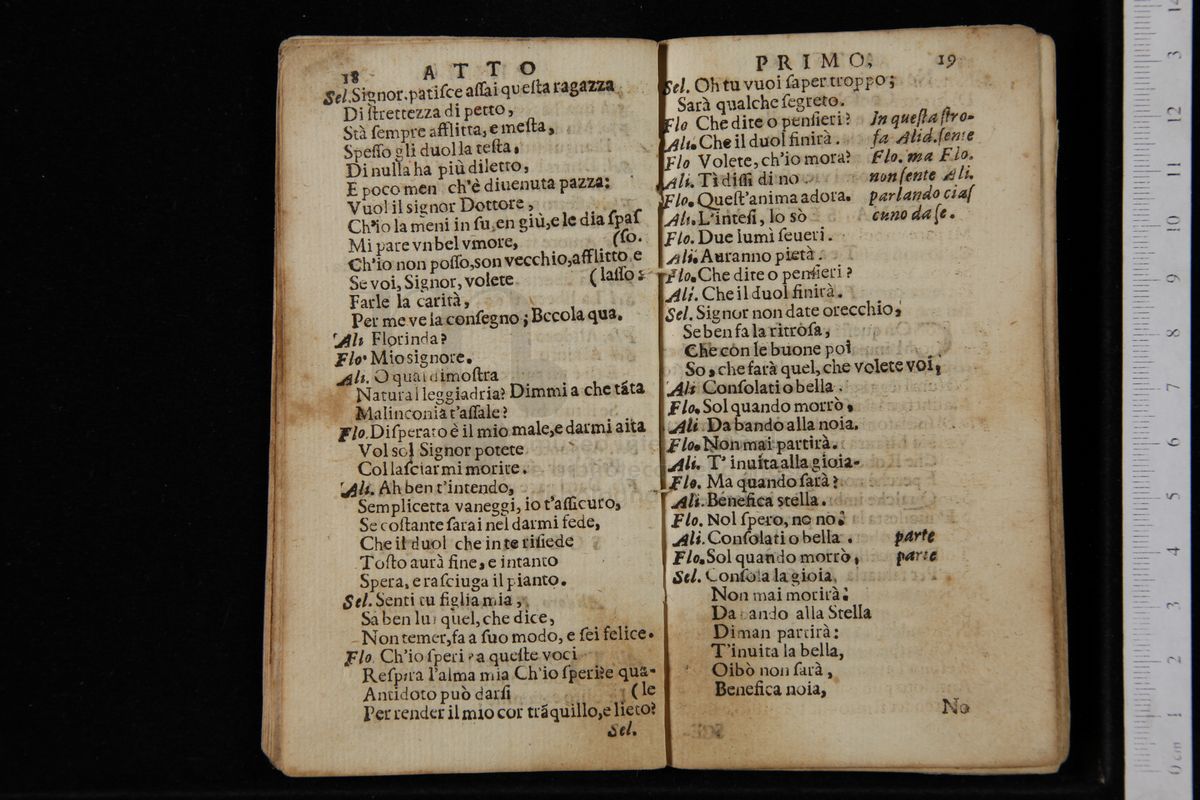 18 ATTO
Sel. Signor, patiſce aſſai queſta ragazza
Di ſtrettezza di petto,
Stà ſempre afflitta, e meſta,
Speſſo gli duol la teſta,
Di nulla ha più diletto,
E poco men ch'è diuenuta pazza:
Vuol il signor Dottore,
Ch'io la meni in ſu, en giù, e le dia ſpaſ
Mi pare vn bel vmore, (ſo.
Ch'io non poſſo, son vecchio, afflitto e
Se voi, Signor, volete (laſſo:
Farle la carità,
Per me ve la conſegno; Eccola qua.
Ali Florinda?
Flo. Mio signore.
Ali. O qual dimoſtra
Natural leggiadria? Dimmi a che tãta
Malinconia t'aſſale?
Flo. Diſperato è il mio male, e darmi aita
Vol sol Signor potete
Col laſciarmi morire.
Ali. Ah ben t'intendo,
Semplicetta vaneggi, io t'aſſicuro,
Se coſtante ſarai nel darmi fede,
Che il duol che in te riſiede
Toſto aurà fine, e intanto
Spera, e raſciuga il pianto.
Sel. Senti tu figlia mia,
Sa ben lui quel, che dice,
Non temer, fa a ſuo modo, e ſei felice.
Flo. Ch'io ſperi a queſte voci
Reſpira l'alma mia Ch'io ſperi? e qua-
Antidoto può darſi (le
Per render il mio cor trãquillo, e lieto?
Sel.
PRIMO, 19
Sel. Oh tu vuoi ſaper troppo;
Sarà qualche ſegreto.
Flo Che dite o penſieri? In queſta ſtro-
Ali. Che il duol finirà. fa Alid. ſente
Flo Volete, ch'io mora? Flo. ma Flo.
Ali. Ti diſſi di no non ſente Ali.
Flo. Queſt'anima adora. parlando ciaſ
Ali. L'inteſi, lo sò cuno da ſe.
Flo. Due lumi ſeueri.
Ali. Auranno pietà.
Flo. Che dite o penſieri?
Ali. Che il duol finirà.
Sel. Signor non date orecchio,
Se ben fa la ritroſa,
Che con le buone poi
So, che farà quel, che volete voi,
Ali Conſolati o bella.
Flo. Sol quando morrò,
Ali Da bando alla noia.
Flo. Non mai partirà.
Ali. T'inuita alla gioia.
Flo. Ma quando ſarà?
Ali. Benefica stella.
Flo. Nol ſpero, no no:
Ali. Conſolati o bella. parte
Flo. Sol quando morrò, parte
Sel. Conſola la gioia,
Non mai morirà:
Da bando alla Stella
Diman partirà:
T'inuita la bella,
Oibò non ſarà,
Benefica noia,
No